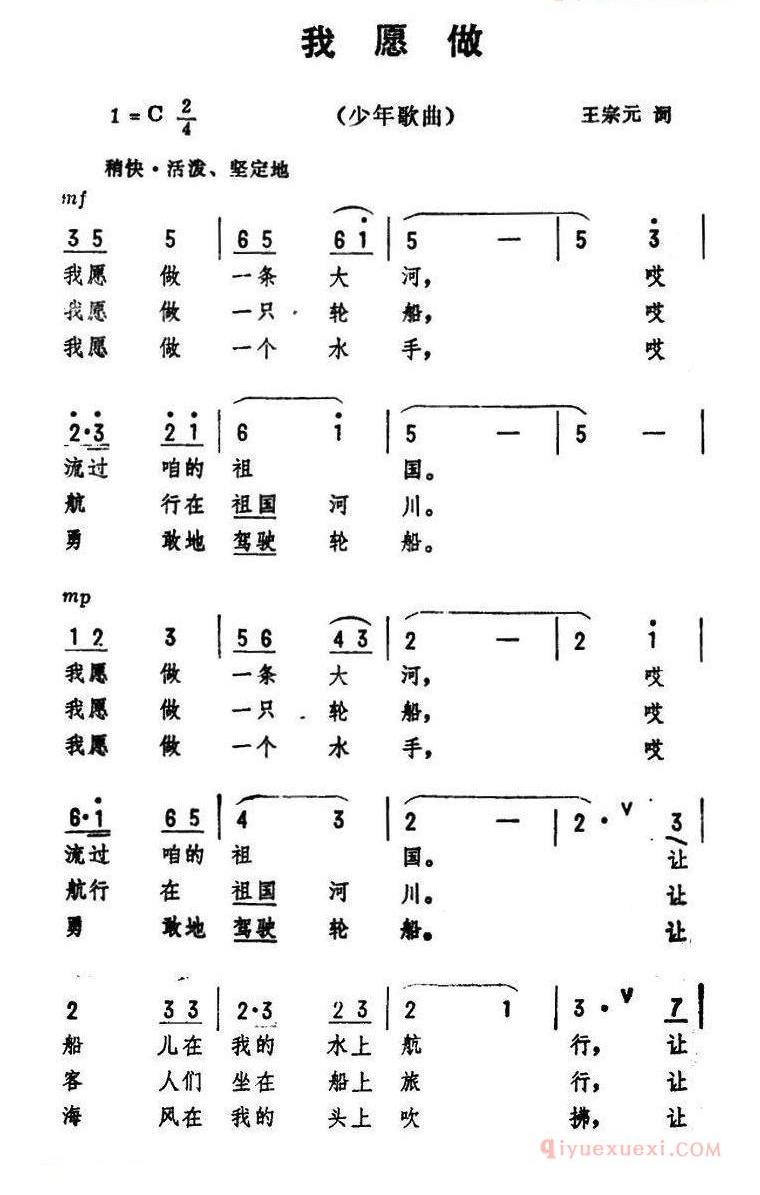 我 愿 做
1 = C 2/4 （少年歌曲） 王宗元 词
稍快·活泼、坚定地
mf
3 5 5 | 6 5 6 i | 5 — | 5 3 |
我愿 做 一条 大 河， 哎
我愿 做 一只 轮 船， 哎
我愿 做 一个 水 手， 哎
2·3 2 i | 6 i | 5 — | 5 —
流过 咱的 祖 国。
航 行在 祖国 河 川。
勇 敢地 驾驶 轮 船。
mp
1 2 3 | 5 6 4 3 | 2 — | 2 i |
我愿 做 一条 大 河， 哎
我愿 做 一只 轮 船， 哎
我愿 做 一个 水 手， 哎
6·i 6 5 | 4 3 | 2 — | 2· V 3
流过 咱的 祖 国。 让
航行 在 祖国 河 川。 让
勇 敢地 驾驶 轮 船。 让
2 3 3 | 2·3 2 3 | 2 1 | 3· V 7
船 儿在 我的 水上 航 行， 让
客 人们 坐在 船上 旅 行， 让
海 风在 我的 头上 吹 拂， 让
qiyuexuexi.COM